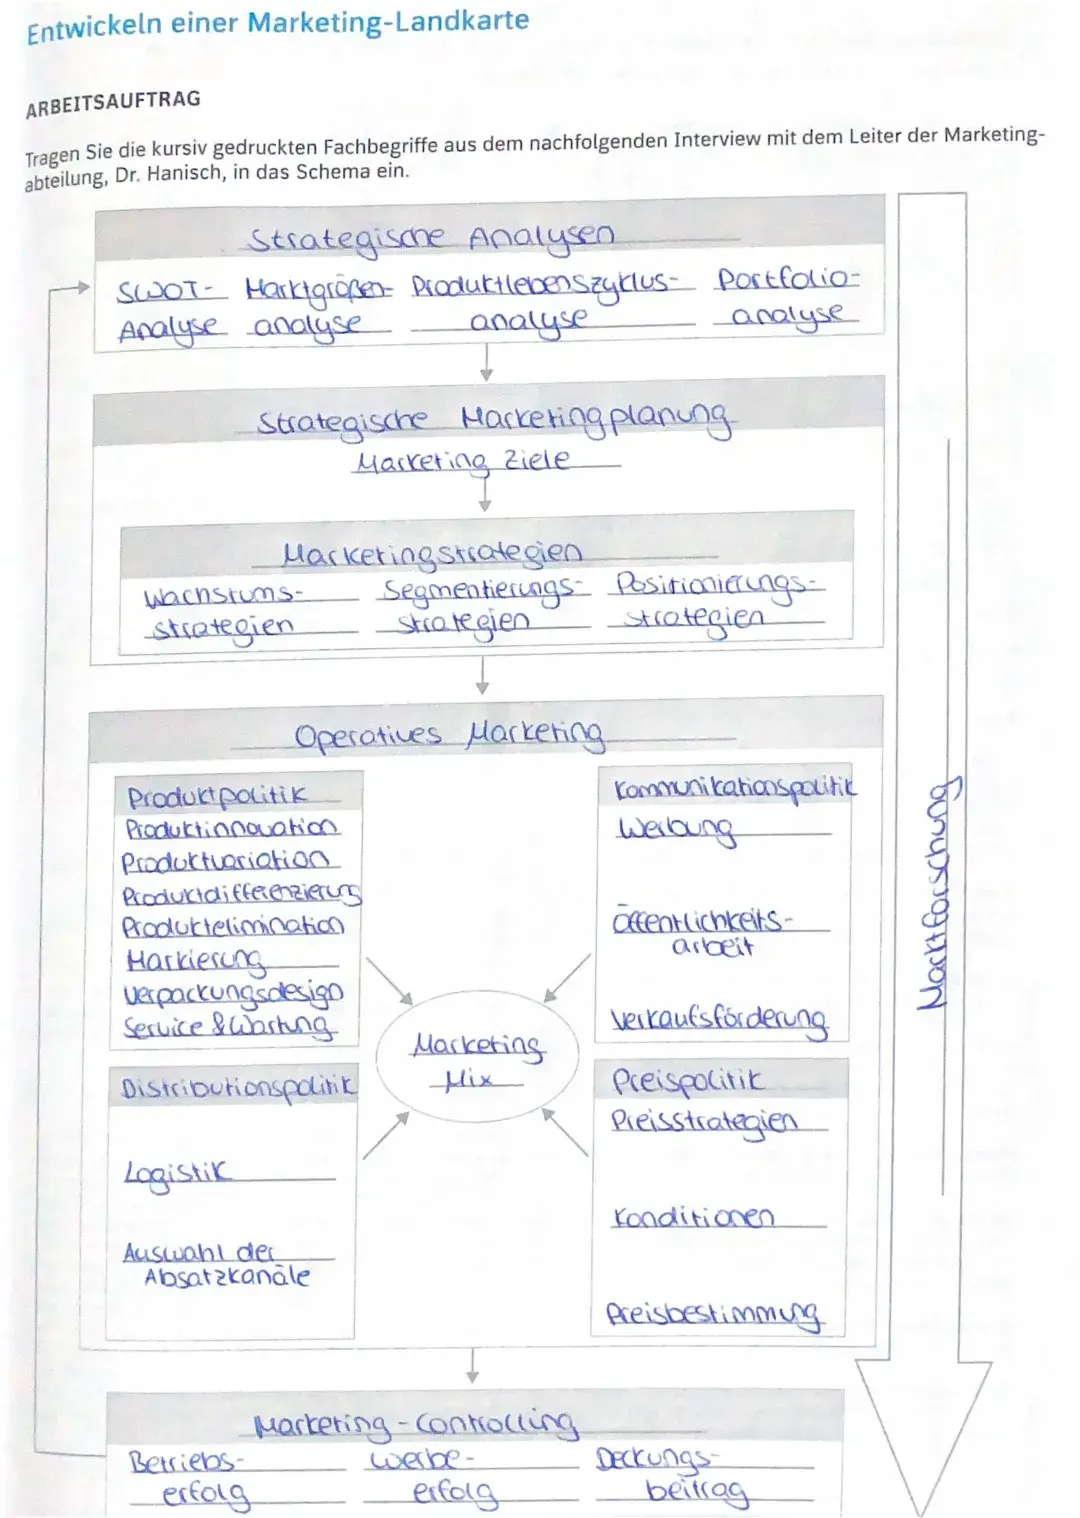 Entwickeln einer Marketing-Landkarte
ARBEITSAUFTRAG
Tragen Sie die kursiv gedruckten Fachbegriffe aus dem nachfolgenden Interview mit dem Leiter der Marketing-
abteilung, Dr. Hanisch, in das Schema ein.
Strategische Analysen
SWOT-
Analyse
Marktgrößen-
analyse
Produktlebenszyklus-
analyse
Portfolio-
analyse
Strategische Marketingplanung
Marketing Ziele
Marketingstrategien
Wachstums-
strategien
Segmentierungs-
strategien
Positionierungs-
strategien
Operatives Marketing
Produktpolitik
Produktinnovation
Produktvariation
Produktdifferenzierung
Produktelimination
Markierung
Verpackungsdesign
Service & Wartung
Kommunikationspolitik
Werbung
Öffentlichkeits-
arbeit
Verkaufsförderung
Marketing
Mix
Distributionspolitik
Logistik
Auswahl der
Absatzkanäle
Preispolitik
Preisstrategien
Konditionen
Preisbestimmung
Marketing-Controlling
Betriebs-
erfolg
Werbe-
erfolg
Deckungs-
beitrag
Marktforschung